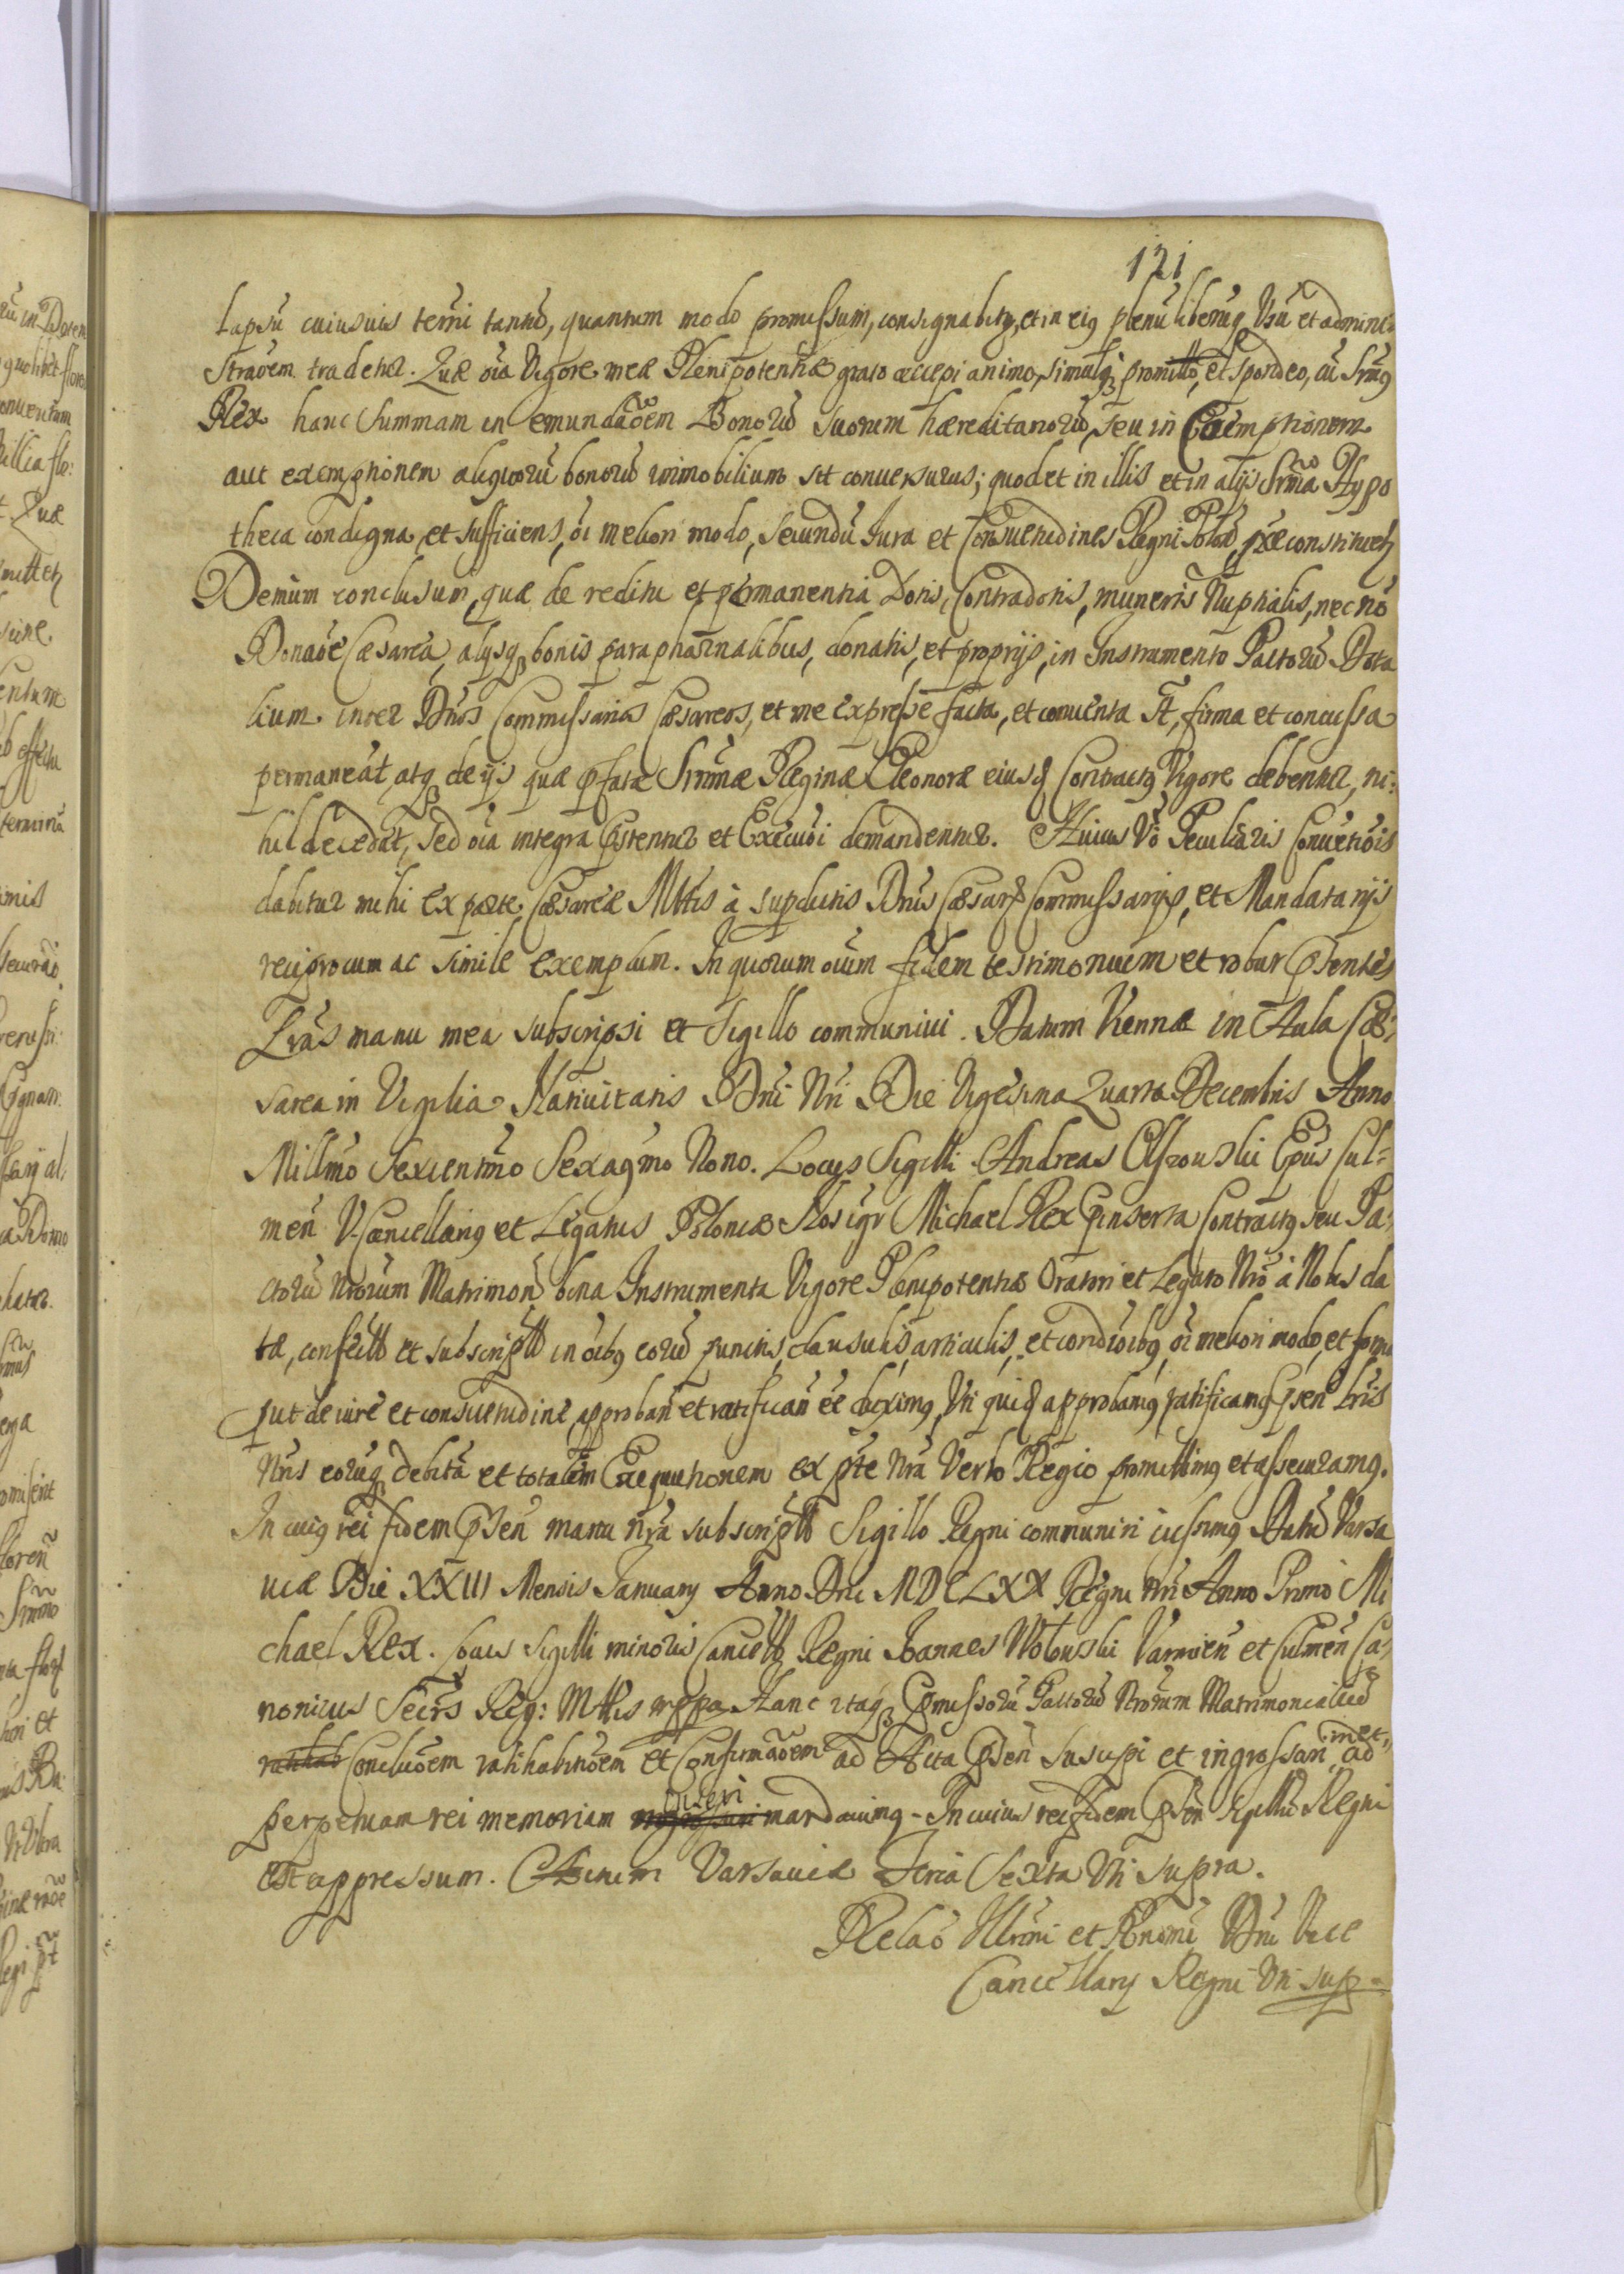 121
lapsu cuiusuis termi tantũ, quantum modo promissum, consignabitr, et in eiq plenũ liberũq Usũ et admini
straõem tradetur. Quæ oia Vigore meæ Plenipotentiæ grato accepi animo, simulq promitto, et spondeo, cũ Srmq
Rex hanc summam in emundaõem Bonorũ suorum hæreditariorũ, seu in Coemptionem
aut exemptionem aliquorũ bonorũ immobilium sit conuersurus; quod et in illis et in alijs Srmã Hypo
theca condigna, et sufficiens, oi meliori modo, secundũ Iura et Consuetudines Regni Polon, præconstituetr
Demum conclusum, quæ de reditu et permanentia Dotis, Contradotis, muneris Nuptialis, nec nõ
Donaõe Cæsarea, alijsq bonis paraphærnalibus, donatis, et proprijs, in Instrumento Pactorũ Dota
lium inter Dnos Commissarios Cæsareos, et me expresse facta, et conuenta st, firma et concussa
permaneãt, atq de ijs quæ pfatæ Srmæ Reginæ Eleonoræ eiusd Contractq Vigore debentur, ni:
hil decedãt, sed oia integra pstentur et Executioi demandentur. Huius Võ Peculiaris Conuẽtiõis
dabitur mihi ex parte Cæsareæ Mttis à supdictis Dnis Cæsar Commissarijs, et Mandatarijs
reciprocum ac simile exemplum. In quorum oium fidem testimonium et robur psentes
Lras manu mea subscripsi et Sigillo communiui. Datum Viennæ in Aula Cæ:
sarea in Vigilia Natiuitatis Dni Nri Die Vigesima Quarta Decembris Anno
Millmo Sexcentmo Sexagmo Nono. Locus Sigilli. Andreas Olszouski Epus Cul=
men VCancellariq et Legatus Poloniæ Nos igr Michael Rex pinserta Contractq seu Pa:
ctorũ Nrorum Matrimon bina Instrumenta Vigore Plenipotentiæ Oratori et Legato Nrõ à Nobis da
tæ, confecta et subscripta in oibq eorũ punctis, clausulis, articulis, et condiõibq, oi meliori modo, et forma
put de iure et consuetudine, approban et ratifican ee duximq, Uti quid approbamq, ratificamq psen Lris
Nris eorũq debitã et totalem Exequutionem ex pte Nra Verbo Regio promittimq et assecuramq.
In cuiq rei fidem psen manu nra subscripta Sigillo Regni communiri iussimq Datũ Varsa
uiæ Die XXIII Mensis Ianuarij Anno Dni MDCLXX Regni nri Anno Primo Mi
chael Rex. Locus Sigilli minoris Cancell Regni Ioannes Wolouski Varmien et Culmen Ca:
nonicus Secrs Reg: Mttis mppa Hanc itaq pmissorũ Pactorũ Nrorum Matrimonialiũ
ratihab Concluõem ratihabitiõem et Confirmaõem ad Acta psen Suscipi et ingrossari, inet, ad
perpetuam rei memoriam ingrossari inseri mandauimq - In cuius rei fidem psen Sigillũ Regni
est appressum. Actum Varsauiæ Feria Sexta Uti supra.
Relaõ Illrmi et Rndmi Dni Vice
Cancellarij Regni Uti sup